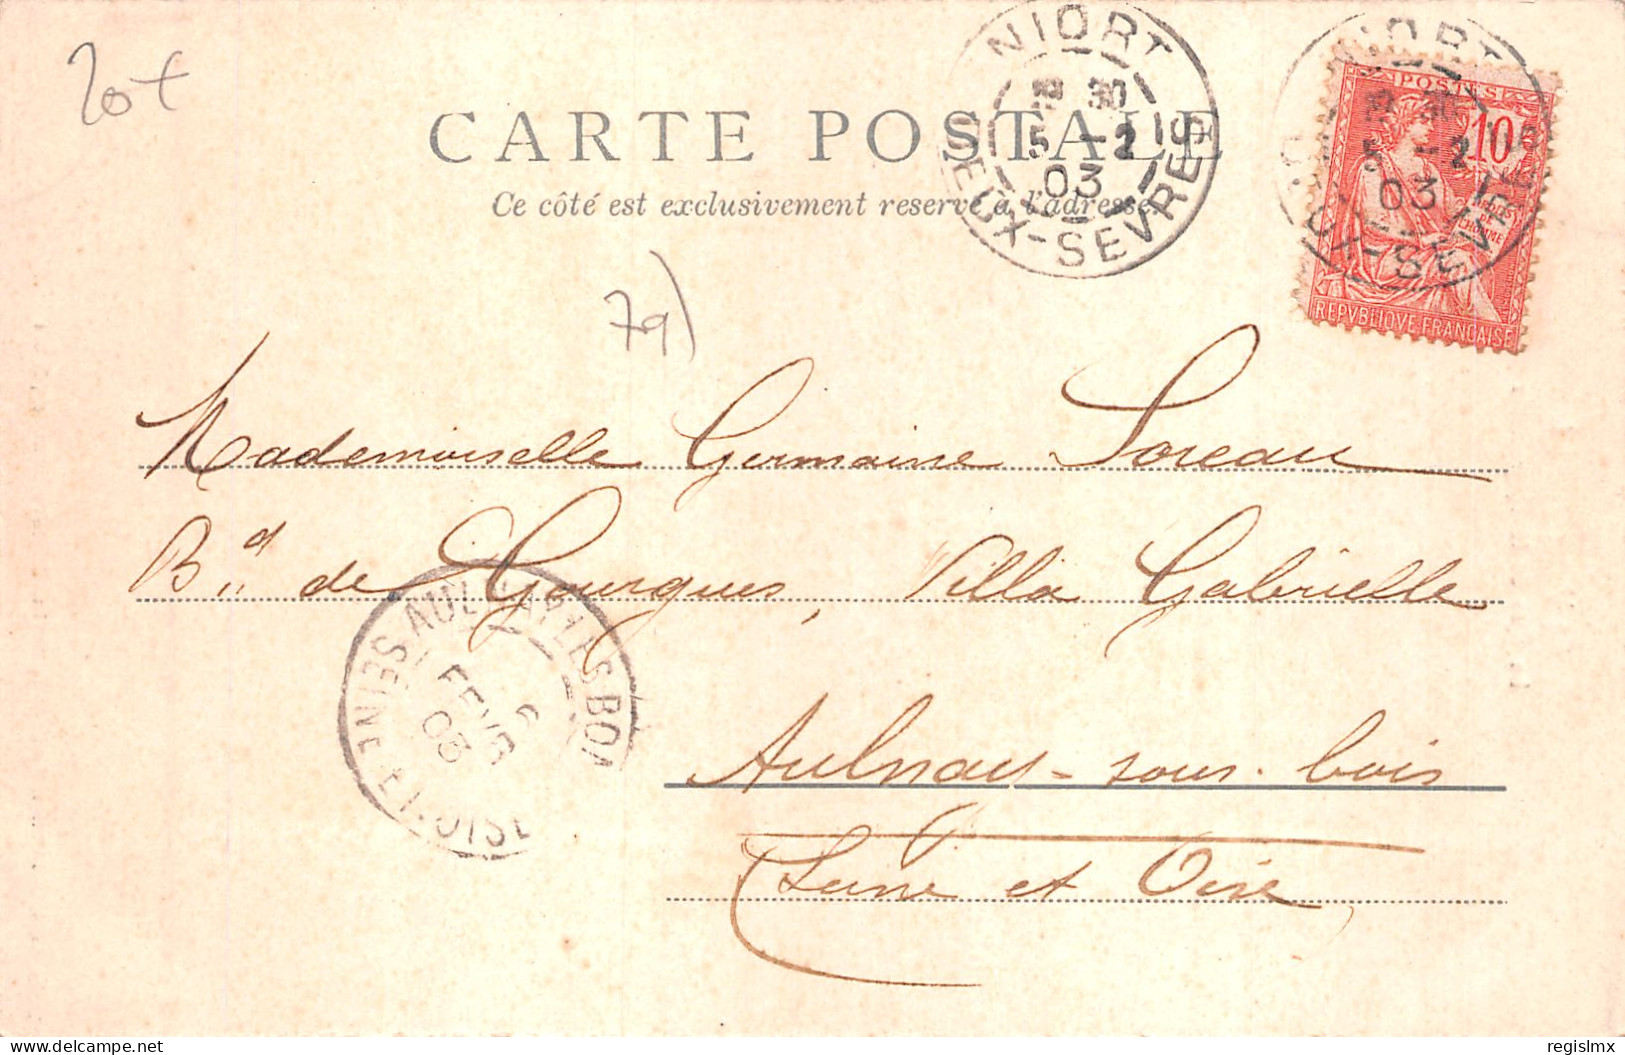 20+
CARTE POSTALE
Ce côté est exclusivement reservé à l'adresse.
NIORT
30
5 -2
03
DEUX-SEVRES
NIORT
5 -2
03
DEUX-SEVRES
POSTES
10
REPVBLIQVE FRANÇAISE
79)
Mademoiselle Germaine Soreau
Bd de Gourgues, Villa Gabrielle
Aulnay-sous-bois
Seine et Oise
6
FEVR
03
SEINE ET OISE
Delcampe.net
regislmx